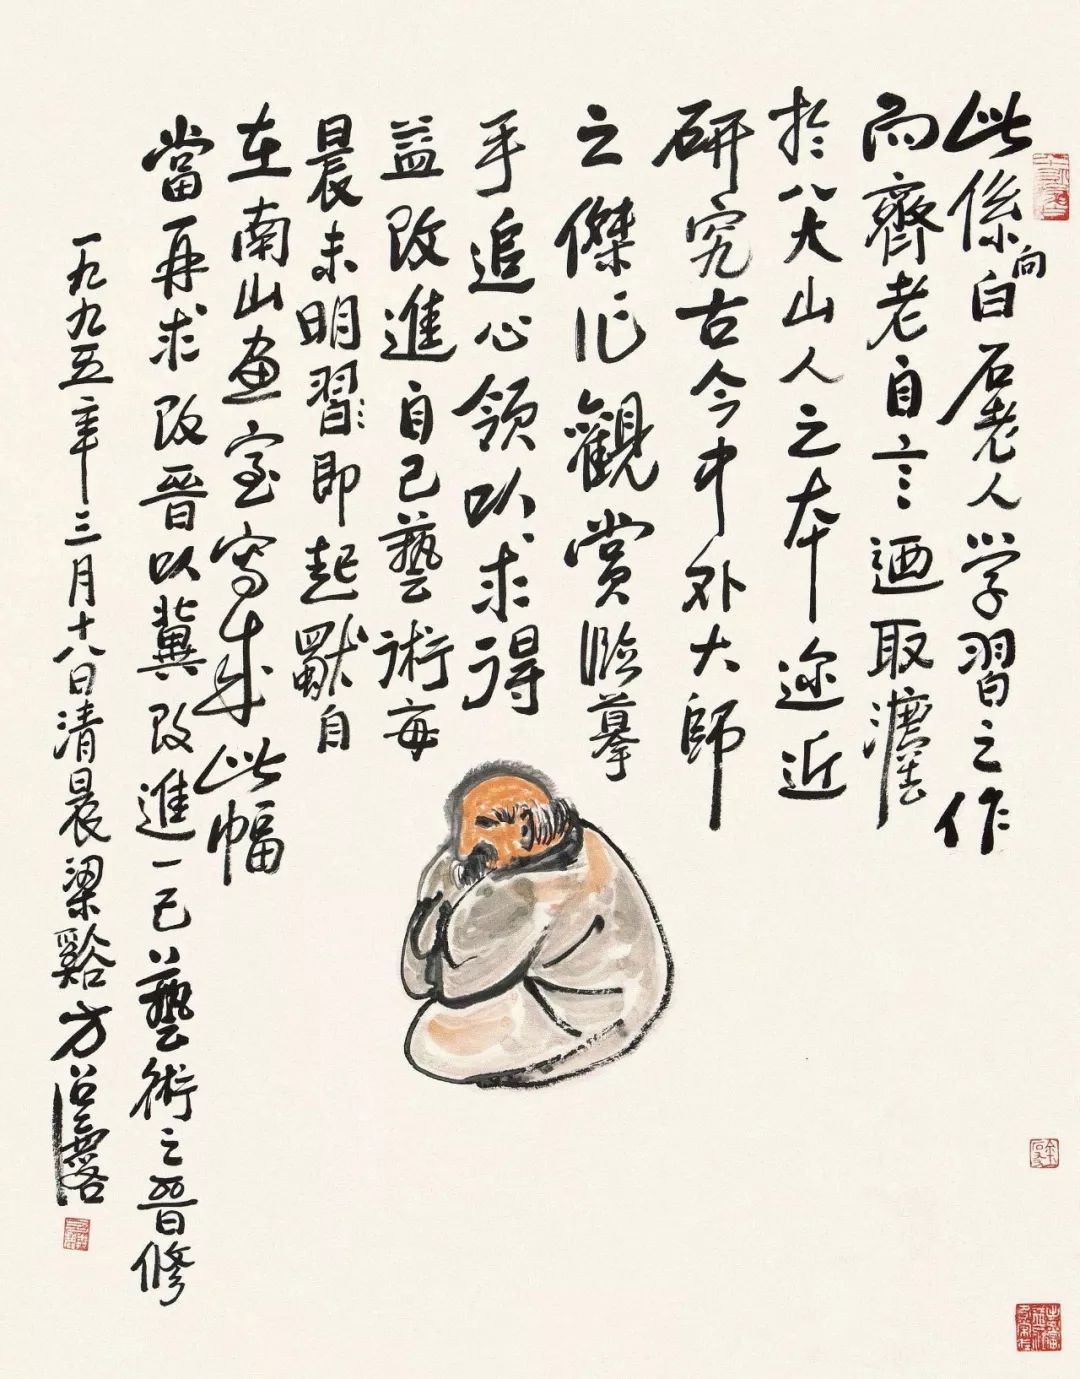 此係向白石老人学習之作
而齊老自言迺取
於八大山人之本迩近
研究古今中外大師
之傑作觀賞臨摹
手追心領以求得
益改進自己藝術每
晨未明習〻即起獸自
在南山画室寫成此幅
當再求改晋以冀改進一己藝術之晋修
一九九五年三月十八日清晨梁谿方召麐